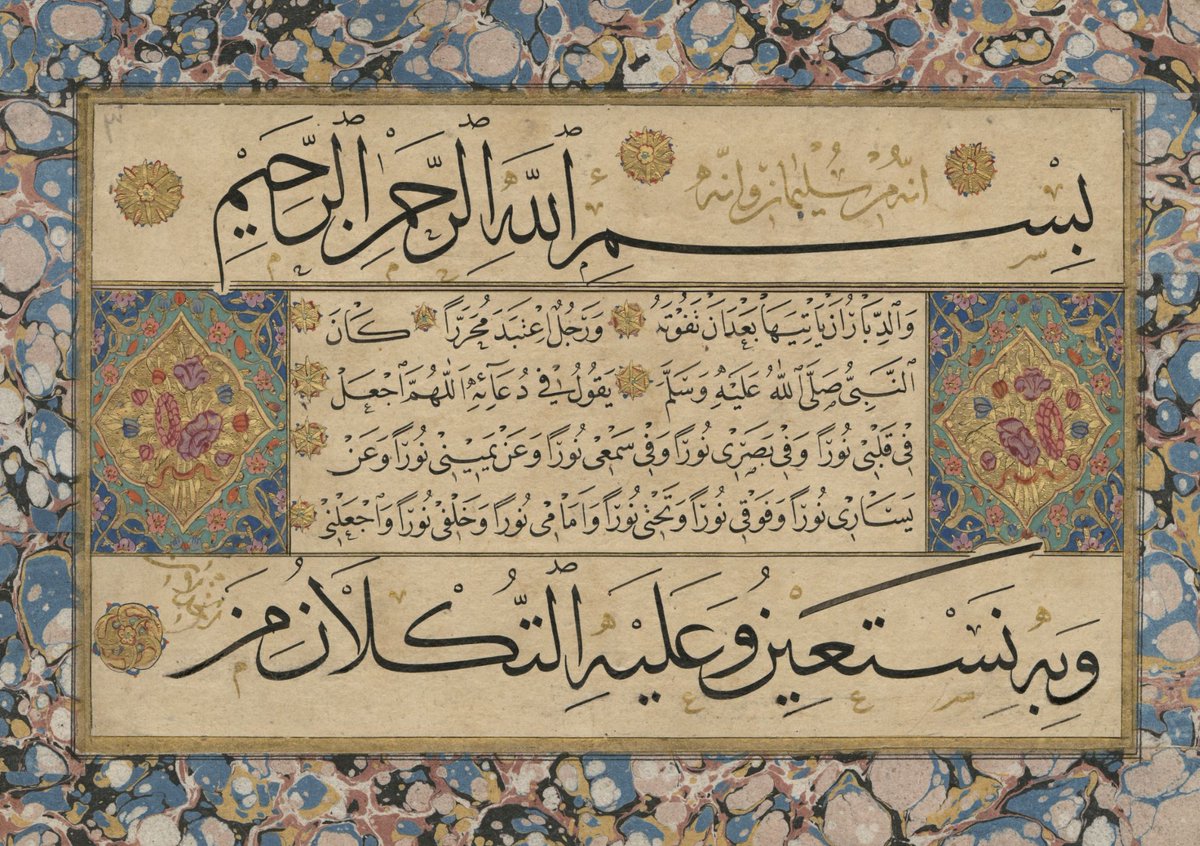 انه من سليمان وانه
بِسْمِ اللَّهِ الرَّحْمٰنِ الرَّحِيمِ
وَالدِّبَارُ اَنْ يَاْتِيَهَا بَعْدَ اَنْ تَفُوتَهُ وَرَجُلٌ اعْتَبَدَ مُحَرَّرًا كَانَ
النَّبِيُّ صَلَّى اللهُ عَلَيْهِ وَسَلَّمَ يَقُولُ فِي دُعَآئِهِ اَللّٰهُمَّ اجْعَلْ
فِي قَلْبِي نُورًا وَفِي بَصَرِي نُورًا وَفِي سَمْعِي نُورًا وَعَنْ يَمِينِي نُورًا وَعَنْ
يَسَارِي نُورًا وَفَوْقِي نُورًا وَتَحْتِي نُورًا وَاَمَامِي نُورًا وَخَلْفِي نُورًا وَاجْعَلْنِي
وَبِهِ نَسْتَعِينُ وَعَلَيْهِ التُّكْلَانُ مِنْ